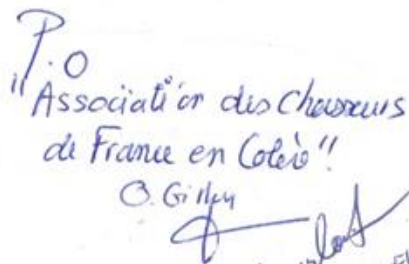 P.O
"Association des Chasseurs
de France en Colère"